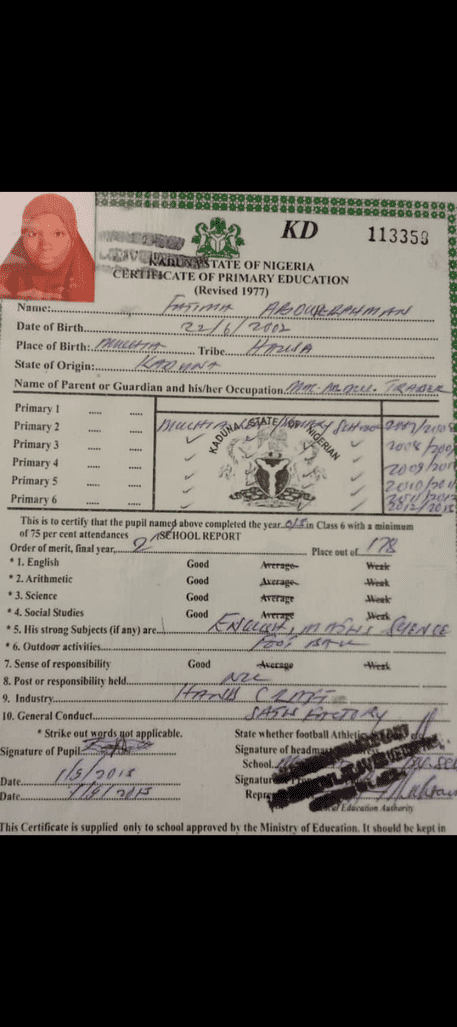 KD 113358
KADUNA STATE OF NIGERIA
CERTIFICATE OF PRIMARY EDUCATION
(Revised 1977)
Name: FATIMA ABDULRAHMAN
Date of Birth 22/6/2002
Place of Birth: Tribe HAUSA
State of Origin: KADUNA
Name of Parent or Guardian and his/her Occupation TRADER
Primary 1
Primary 2 SCHOOL 2007/2008
KADUNA STATE OF NIGERIAN
Primary 3
Primary 4
Primary 5
Primary 6 2012/2013
This is to certify that the pupil named above completed the year in Class 6 with a minimum
of 75 per cent attendances SCHOOL REPORT
Order of merit, final year, 2 Place out of 178
* 1. English Good Average Weak
* 2. Arithmetic Good Average Weak
* 3. Science Good Average Weak
* 4. Social Studies Good Average Weak
* 5. His strong Subjects (if any) are ENGLISH, MATHS SCIENCE
* 6. Outdoor activities FOOT BALL
7. Sense of responsibility Good Average Weak
8. Post or responsibility held NIL
9. Industry HAND CRAFT
10. General Conduct
* Strike out words not applicable. State whether football Athletic
Signature of Pupil Signature of
School
Date 1/8/2013
Date 1/8/2013
Education Authority
This Certificate is supplied only to school approved by the Ministry of Education. It should be kept in